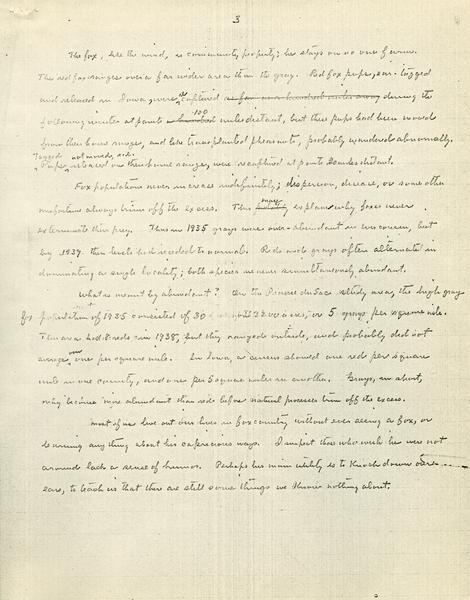 3
The fox, like the wind, is community property; he stays on no one farm.
The red fox ranges over a far wider area than the gray. Red fox pups, ear-tagged
and released in Iowa, were recaptured as far as a hundred miles away during the
following winter at points 100 miles distant, but these pups had been moved
from their home ranges, and like transplanted pheasants, probably wandered abnormally.
Tagged not moved, i.e.
Pups released on their home range, were recaptured at points miles distant.
Fox populations never increase indefinitely; dispersion, disease, or some other
always trim off the excess. This may explain why foxes never
exterminate their prey. Thus in 1935 grays were over-abundant in Wisconsin, but
by 1937 their levels had receded to normal. Reds and grays often alternate in
dominating a single locality; both species are never simultaneously abundant.
What is meant by abundant? On the Prairie du Sac study area, the high gray
fox population of 1935 consisted of 30 on acres, or 5 grays per square mile.
This area had reds in 1938, but they ranged outside, and probably did not
average over one per square mile. In Iowa, a census showed one red per square
mile in one county, and one per 5 square miles in another. Grays, in short,
may become more abundant than reds before natural processes trim off the excess.
Most of us live out our lives in fox country without ever seeing a fox, or
learning anything about his capricious ways. I suspect those who wish he were not
around lack a sense of humor. Perhaps his main utility is to knock down our
ears, to teach us that there are still some things we know nothing about.